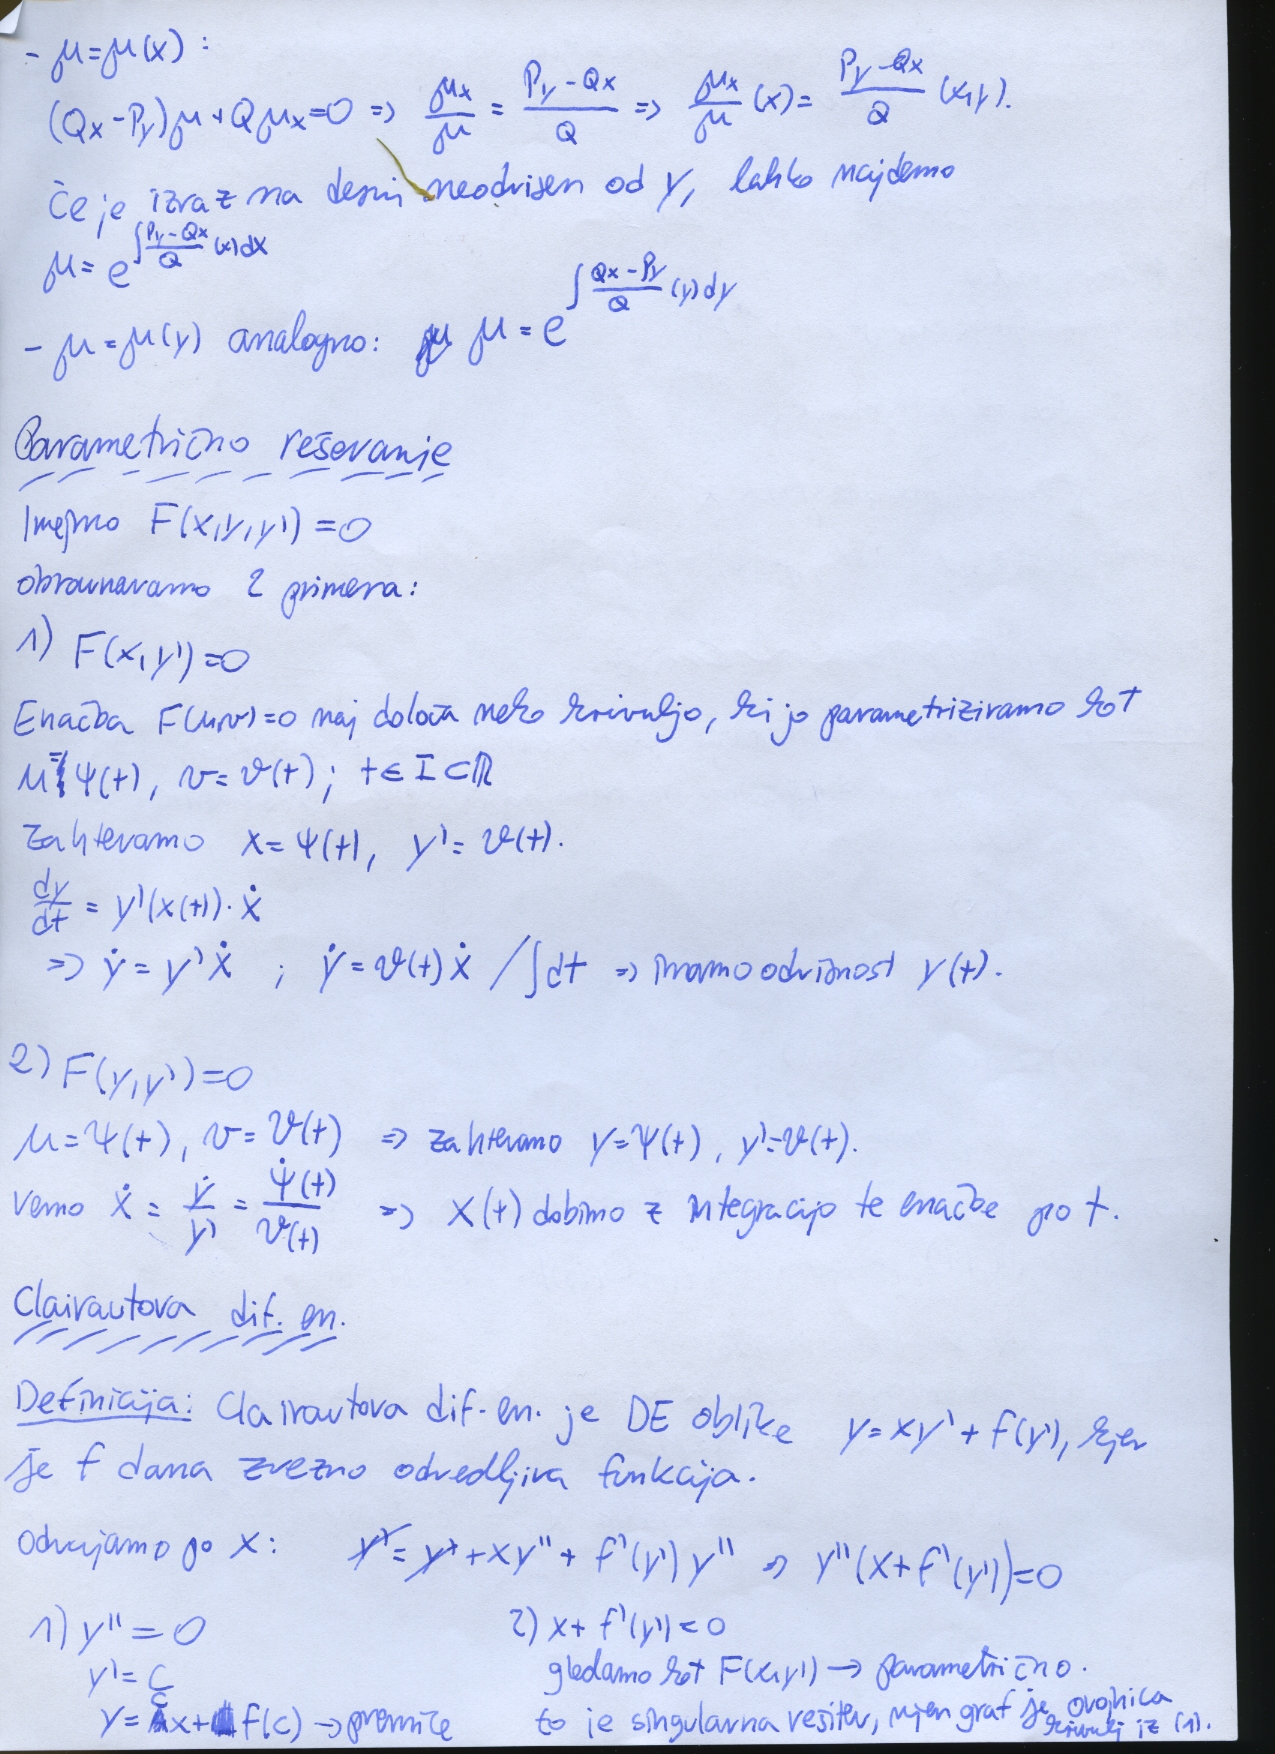 - μ=μ(x):
(Qx-Py)μ+Qμx=0 => μx/μ = (Py-Qx)/Q => μx/μ (x) = (Py-Qx)/Q (x,y).
Če je izraz na desni neodvisen od y, lahko najdemo
μ = e^∫ (Py-Qx)/Q (x)dx
- μ=μ(y) analogno: μ = e^∫ (Qx-Py)/Q (y)dy
Parametrično reševanje
Imejmo F(x,y,y')=0
obravnavamo 2 primera:
1) F(x,y')=0
Enačba F(u,v)=0 naj določa neko krivuljo, ki jo parametriziramo kot
u=ψ(t), v=ϑ(t); t∈I⊂ℝ
Zahtevamo x=ψ(t), y'=ϑ(t).
dy/dt = y'(x(t))·ẋ
=> ẏ=y'ẋ ; ẏ=ϑ(t)ẋ /∫dt => imamo odvisnost y(t).
2) F(y,y')=0
u=ψ(t), v=ϑ(t) => zahtevamo y=ψ(t), y'=ϑ(t).
vemo ẋ = ẏ/y' = ψ̇(t)/ϑ(t) => x(t) dobimo z integracijo te enačbe po t.
Clairautova dif. en.
Definicija: Clairautova dif. en. je DE oblike y=xy'+f(y'), kjer
je f dana zvezno odvedljiva funkcija.
Odvajamo po x: y'=y'+xy''+f'(y')y'' => y''(x+f'(y'))=0
1) y''=0 2) x+f'(y')=0
y'=C gledamo kot F(x,y') → parametrično.
y=Cx+f(C) → premice to je singularna rešitev, njen graf je ovojnica
krivulj iz (1).